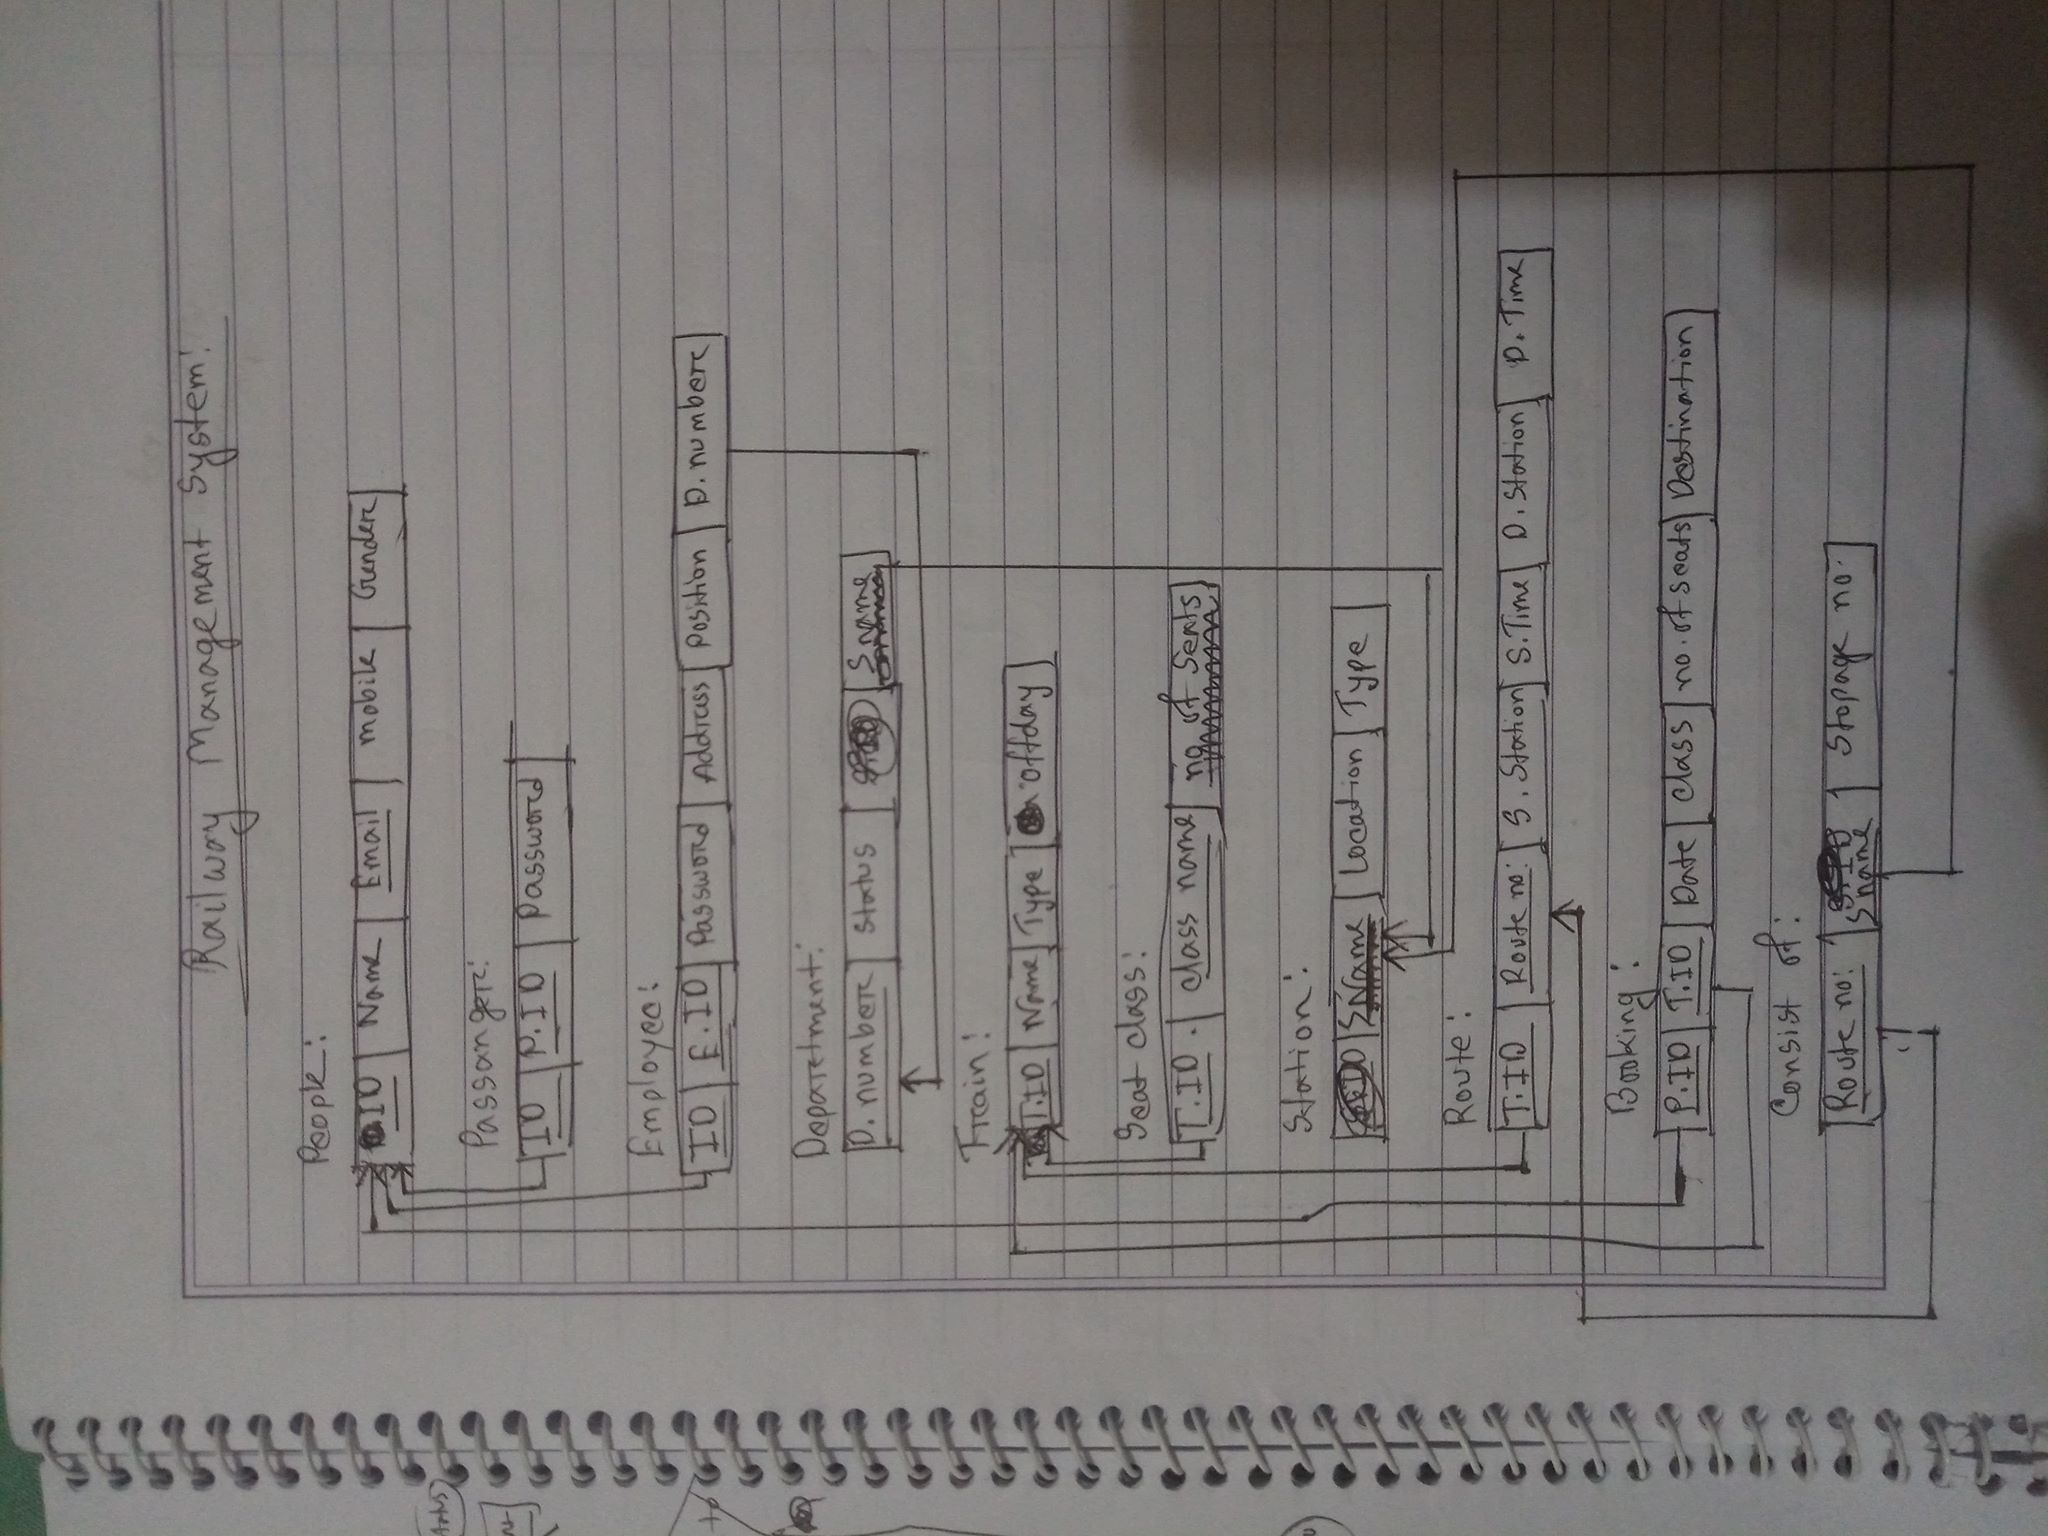 Railway Management System:
People:
ID Name Email mobile Gender
Passanger:
ID P.ID Password
Employee:
ID E.ID Password Address Position D.number
Department:
D.number status Sname
Train:
T.ID Name Type offday
Seat class:
T.ID. class name no of Seats
Station:
SName Location Type
Route:
T.ID Route no: S.Station S.Time D.Station D.Time
Booking:
P.ID T.ID Date class no.of seats Destination
Consist of:
Route no: Sname Stopage no.